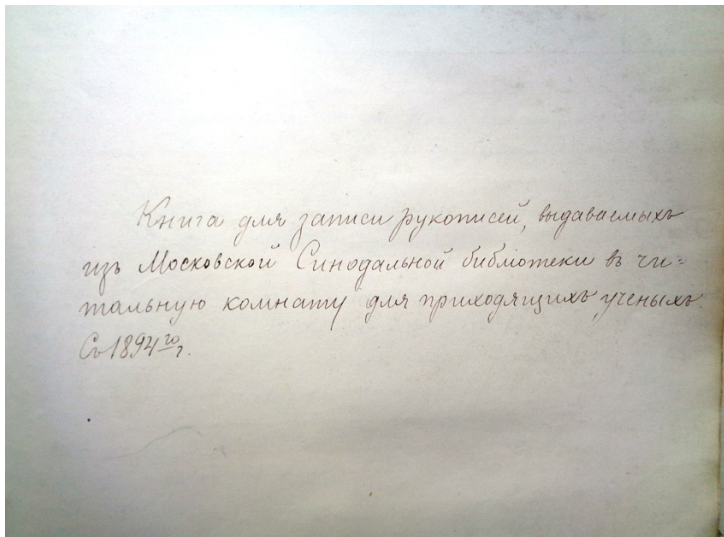 Книга для записи рукописей, выдаваемыхъ
изъ Московской Синодальной библіотеки въ чи=
тальную комнату для приходящихъ ученыхъ.
Съ 1894го г.